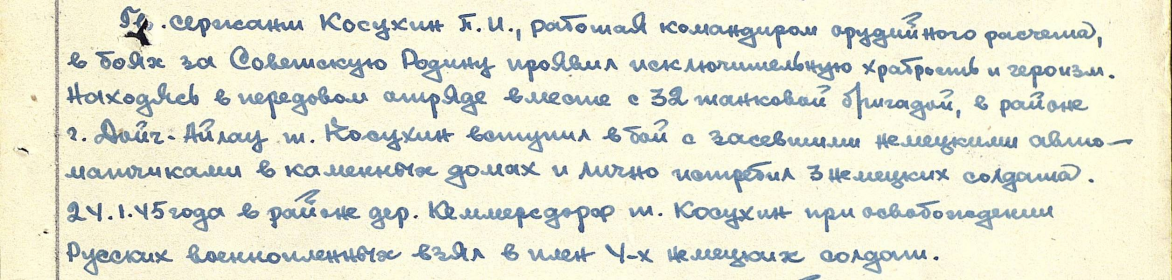 Гв. сержант Косухин П.И., работая командиром орудийного расчета,
в боях за Советскую Родину проявил исключительную храбрость и героизм.
Находясь в передовом отряде вместе с 32 танковой бригадой, в районе
г. Дойч-Айлау т. Косухин вступил в бой с засевшими немецкими авто-
матчиками в каменных домах и лично истребил 3 немецких солдата.
24.1.45 года в районе дер. Кеммерсдорф т. Косухин при освобождении
Русских военнопленных взял в плен 4-х немецких солдат.